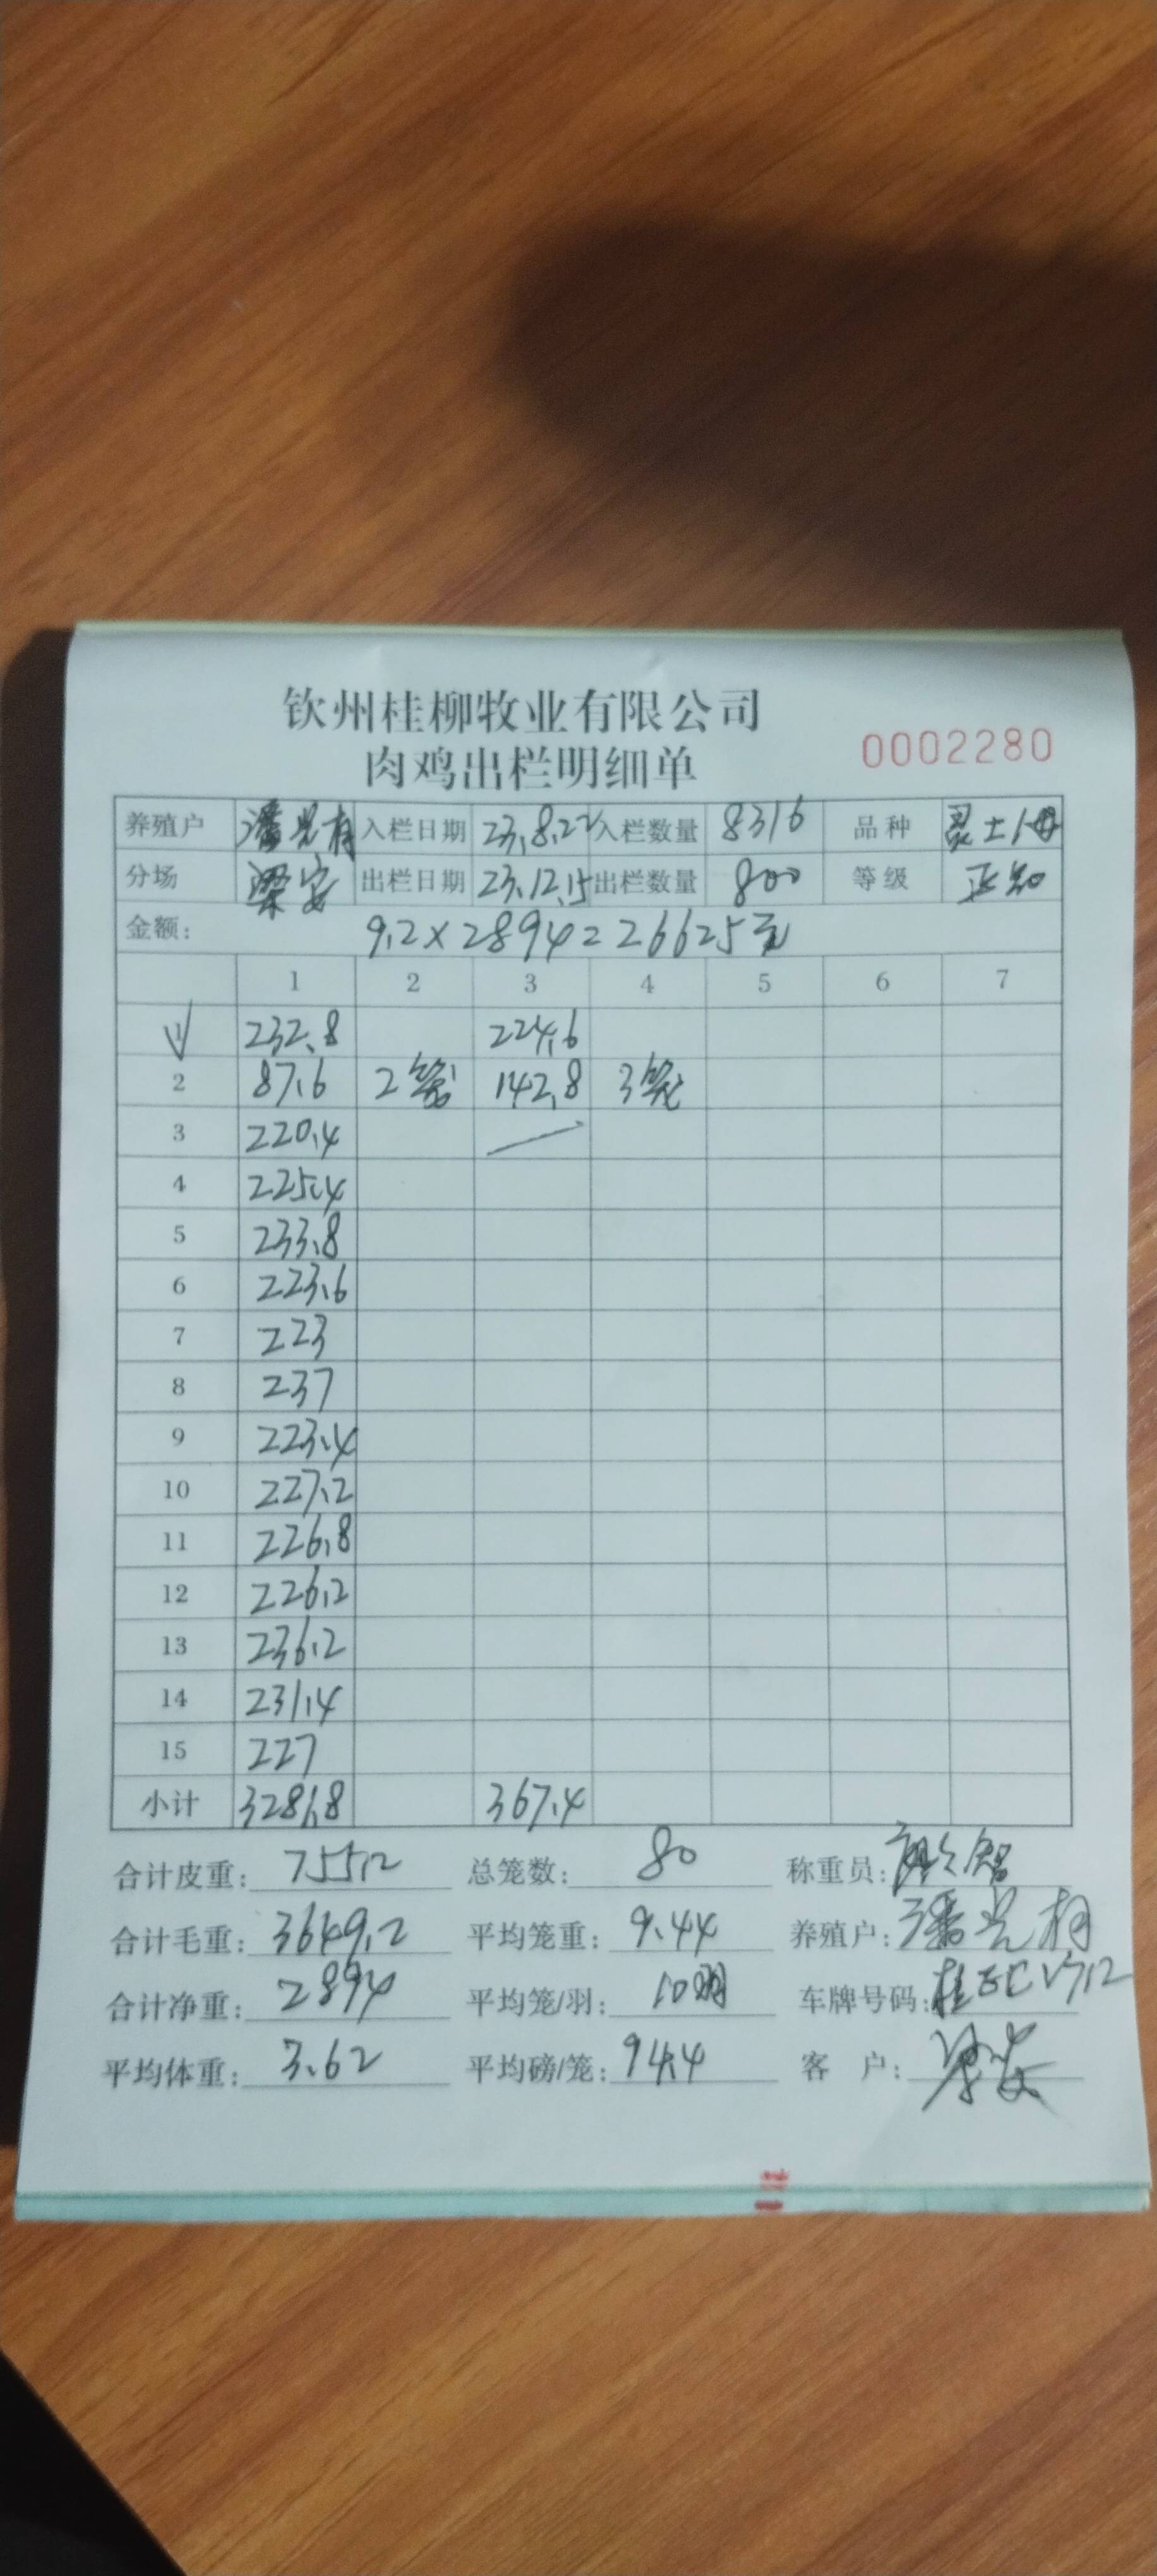 钦州桂柳牧业有限公司
肉鸡出栏明细单
0002280
养殖户 入栏日期 23.8.22 入栏数量 8316 品种 灵土1母
分场 梁安 出栏日期 23.12.15 出栏数量 800 等级 正品
金额: 9.2×2894=26625元
1 2 3 4 5 6 7
1 232.8 224.6
2 87.6 2笼 142.8 3笼
3 220.4
4 225.4
5 233.8
6 223.6
7 223
8 237
9 223.4
10 227.2
11 226.8
12 226.2
13 236.2
14 231.4
15 227
小计 3281.8 367.4
合计皮重: 755.2 总笼数: 80 称重员:
合计毛重: 3649.2 平均笼重: 9.44 养殖户:
合计净重: 2894 平均笼/羽: 10羽 车牌号码:
平均体重: 3.62 平均磅/笼: 94.4 客 户: